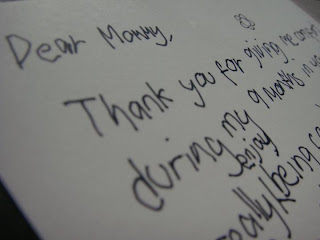 Dear Mommy,
Thank you for giving me
during my 9 months in
enjoy
really being